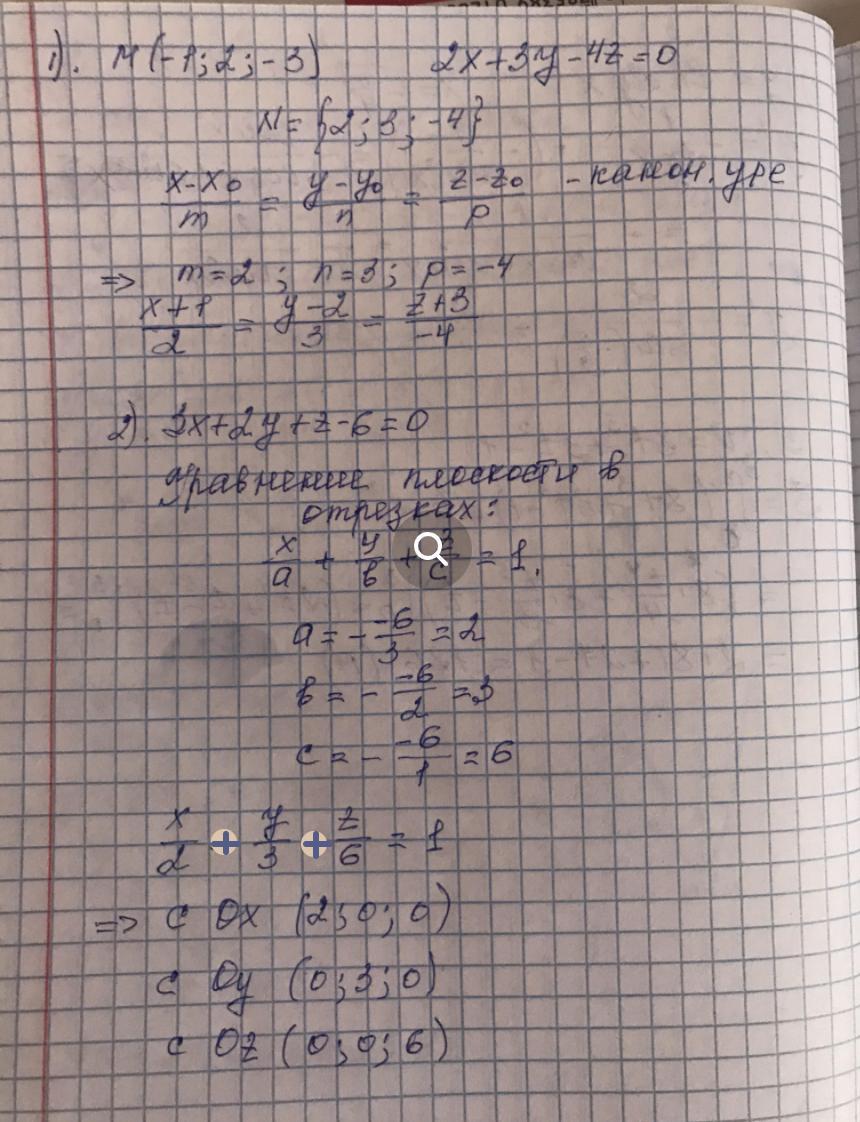 1). M(-1;2;-3) 2x+3y-4z=0
N={2;3;-4}
x-x₀/m = y-y₀/n = z-z₀/p - канон. уре
=> m=2; n=3; p=-4
x+1/2 = y-2/3 = z+3/-4
2). 3x+2y+z-6=0
Уравнение плоскости в
отрезках:
x/a + y/b + z/c = 1.
a = - -6/3 = 2
b = - -6/2 = 3
c = - -6/1 = 6
x/2 + y/3 + z/6 = 1
=> с Ox (2;0;0)
с Oy (0;3;0)
с Oz (0;0;6)